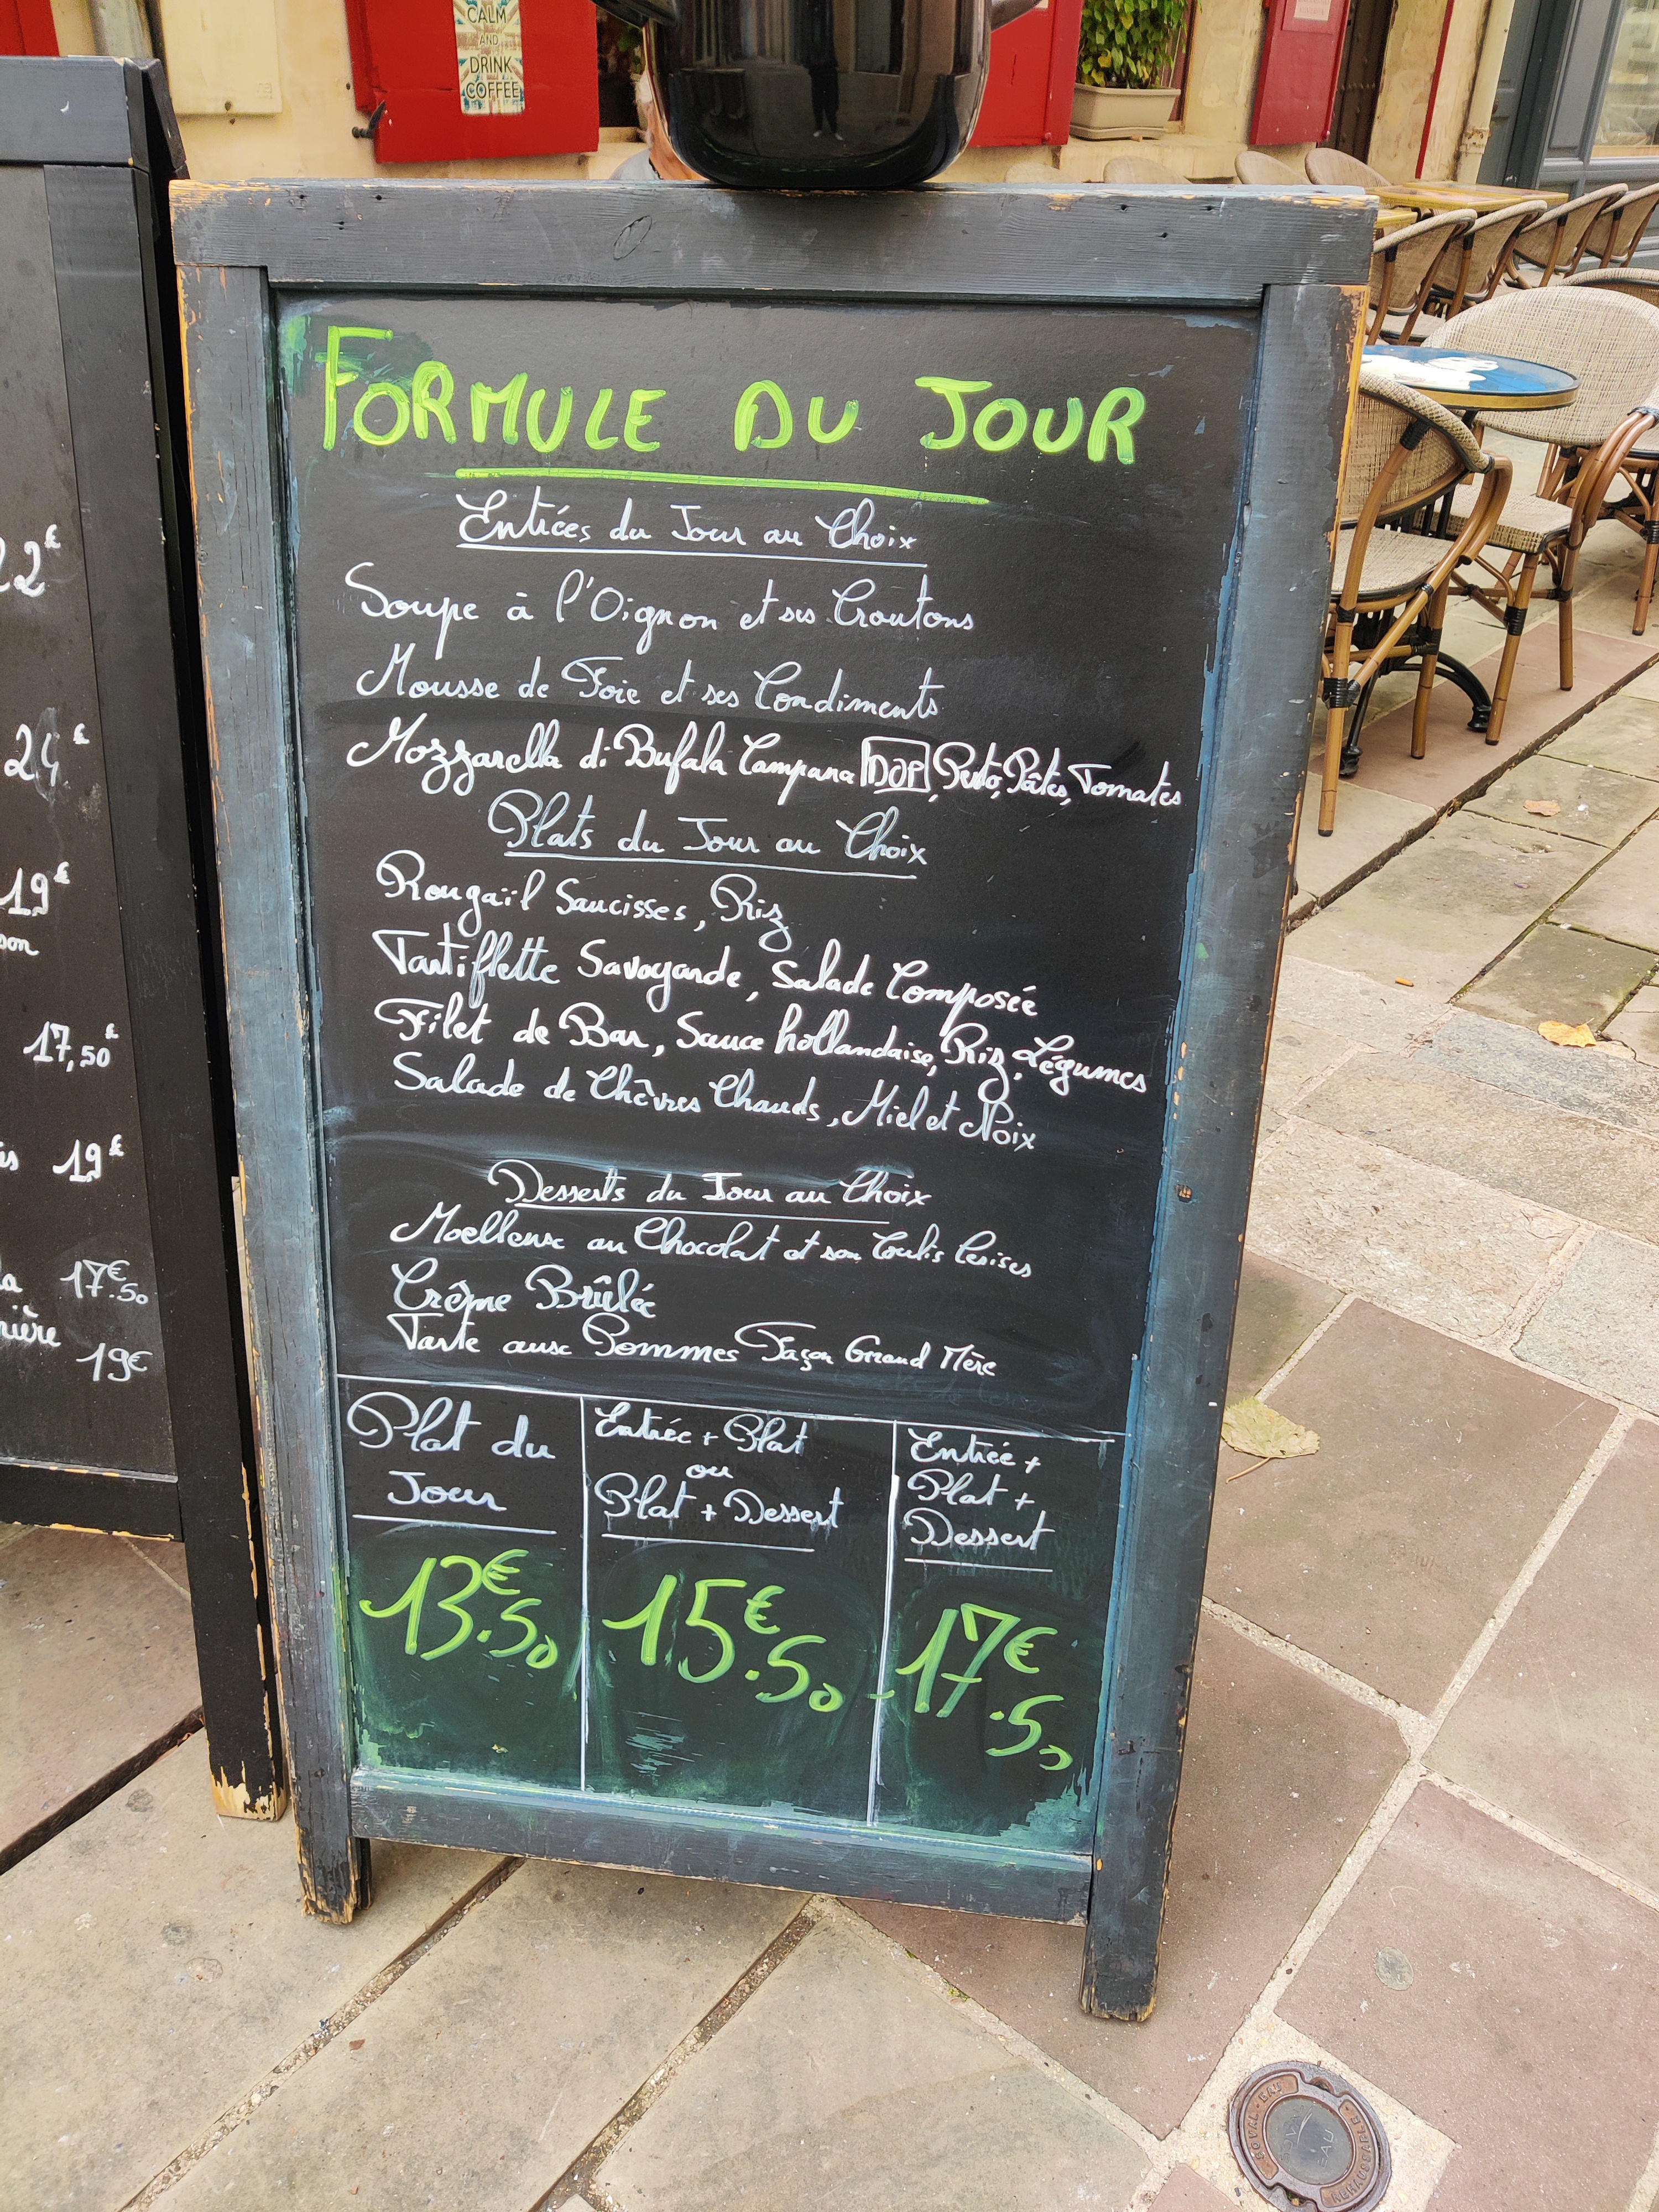 CALM
AND
DRINK
COFFEE
22€
24€
19€
son
17,50€
19€
17€.50
nière
19€
FORMULE DU JOUR
Entrées du Jour au Choix
Soupe à l'Oignon et ses Croutons
Mousse de Foie et ses Condiments
Mozzarella di Bufala Campana DOP, Pesto, Pâtes, Tomates
Plats du Jour au Choix
Rougaïl Saucisses, Riz
Tartiflette Savoyarde, Salade Composée
Filet de Bar, Sauce hollandaise, Riz, Légumes
Salade de Chèvres Chauds, Miel et Noix
Desserts du Jour au Choix
Moelleux au Chocolat et son Coulis Cerises
Crême Brûlée
Tarte aux Pommes Façon Grand Mère
Plat du
Jour
13€.50
Entrée + Plat
ou
Plat + Dessert
15€.50
Entrée +
Plat +
Dessert
17€.50
EAU